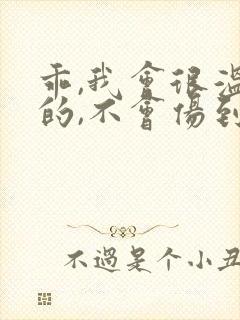 乖,我會很溫
的,不會傷到
不過是个小丑